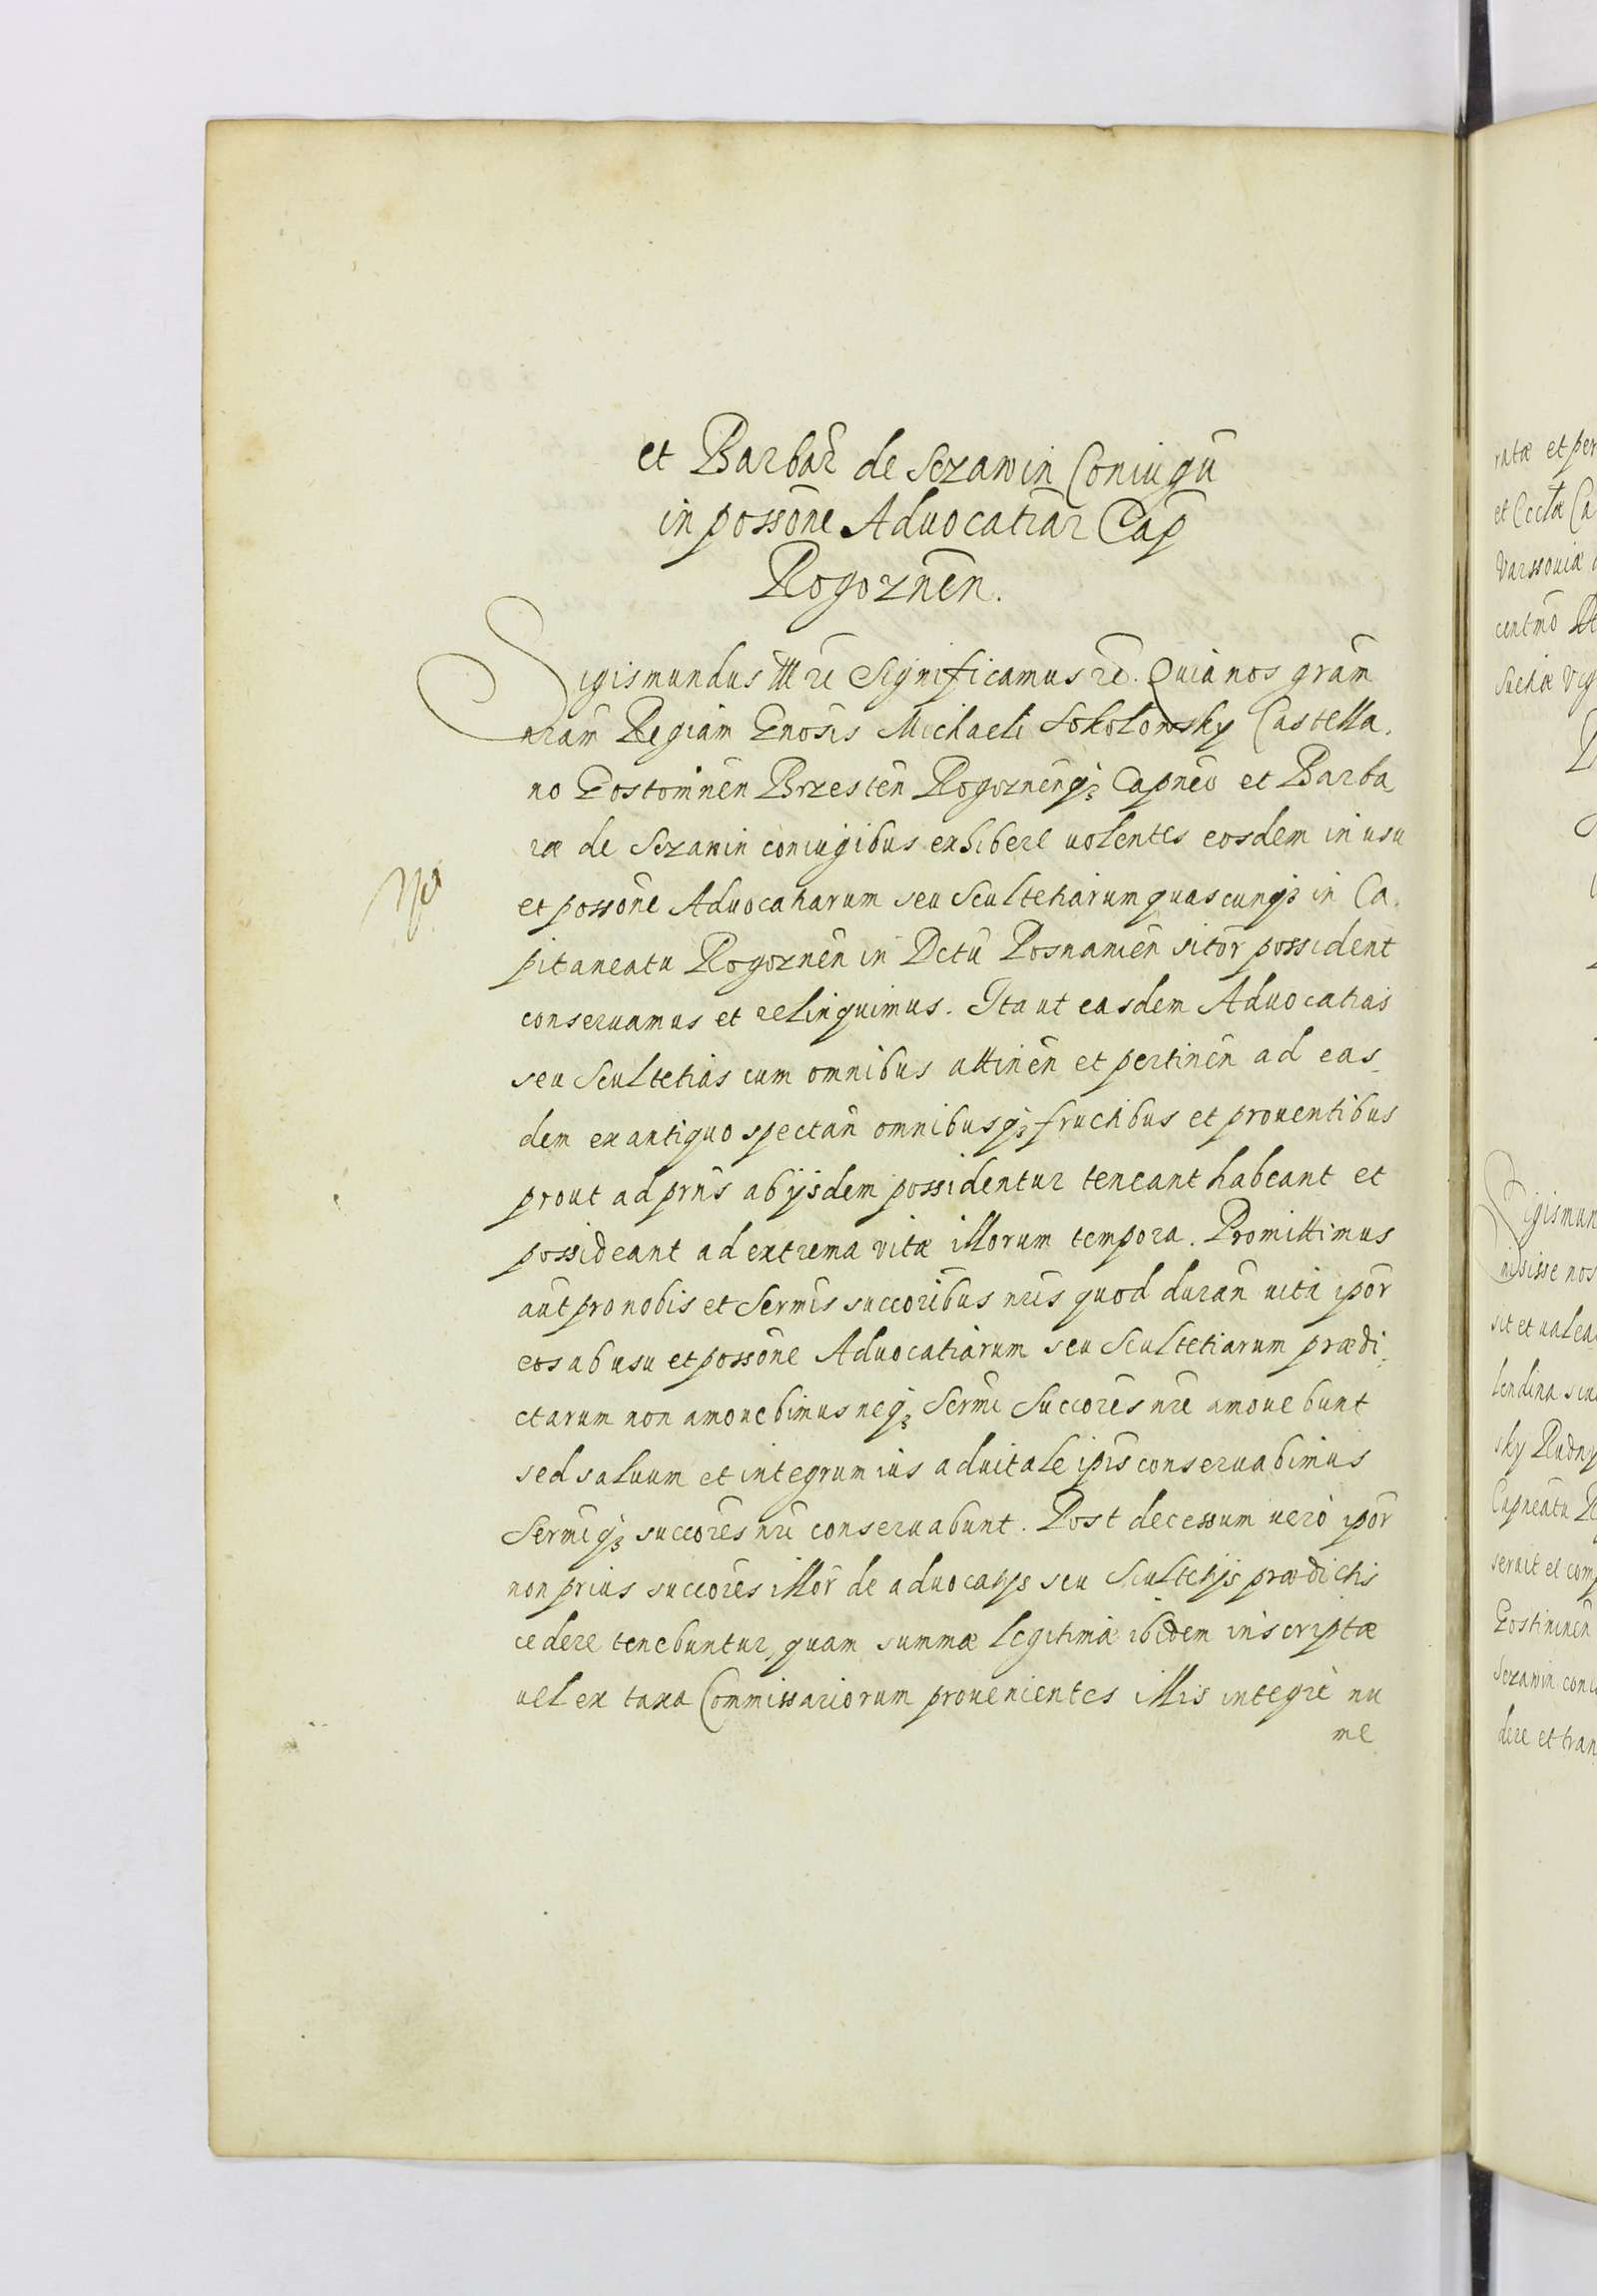 et Barbar̄ de Sczawin Coniugū
in possōne Advocatiar̄ Cap̄
Rogoznēn.
Sigismundus III rē Significamus rē. Quia nos grām
nrām Regiam Gnosis Michaeli Sokolowsky Castella.
no Gostominēn Brzestēn Rogoznēnq3 Capnēo et Barba
ræ de Sczawin coniugibus exhibere uolentes eosdem in usu
et possōne Aduocatiarum seu Scultetiarum quascunq3 in Ca.
pitaneatu Rogoznēn in Dctū Posnaniēn sitōr possident
conseruamus et relinquimus. Ita ut easdem Aduocatias
seu Scultetias cum omnibus attinēn et pertinēn ad eas
dem ex antiquo spectān omnibusq3 fructibus et prouentibus
prout ad prn̄s ab ijsdem possidentur teneant habeant et
possideant ad extrema vitæ illorum tempora. Promittimus
aūt pro nobis et Sermīs succoribus nrīs quod durān uitā ipōr
eos ab usu et possōne Aduocatiarum seu Scultetiarum prædi,
ctarum non amouebimus neq3 Sermī Succorēs nrī amouebunt
sed saluum et integrum ius aduitale ipīs conseruabimus
Sermīq3 succorēs nrī conseruabunt. Post decessum uero ipōr
non prius succorēs illōr de aduocatijs seu Scultetijs prædictis
cedere tenebuntur, quam summæ legitimæ ibidem inscriptæ
uel ex taxa Commissariorum prouenientes illis integrè nu
me
ratæ et per
et Ccctæ Ca
Varssouiæ
centmō
Sigismun
nisisse nos
sit et ualea
lendina
sky Rudny
Capneatu
seruit et com
Gostininēn
Sczawin con
dere et tran